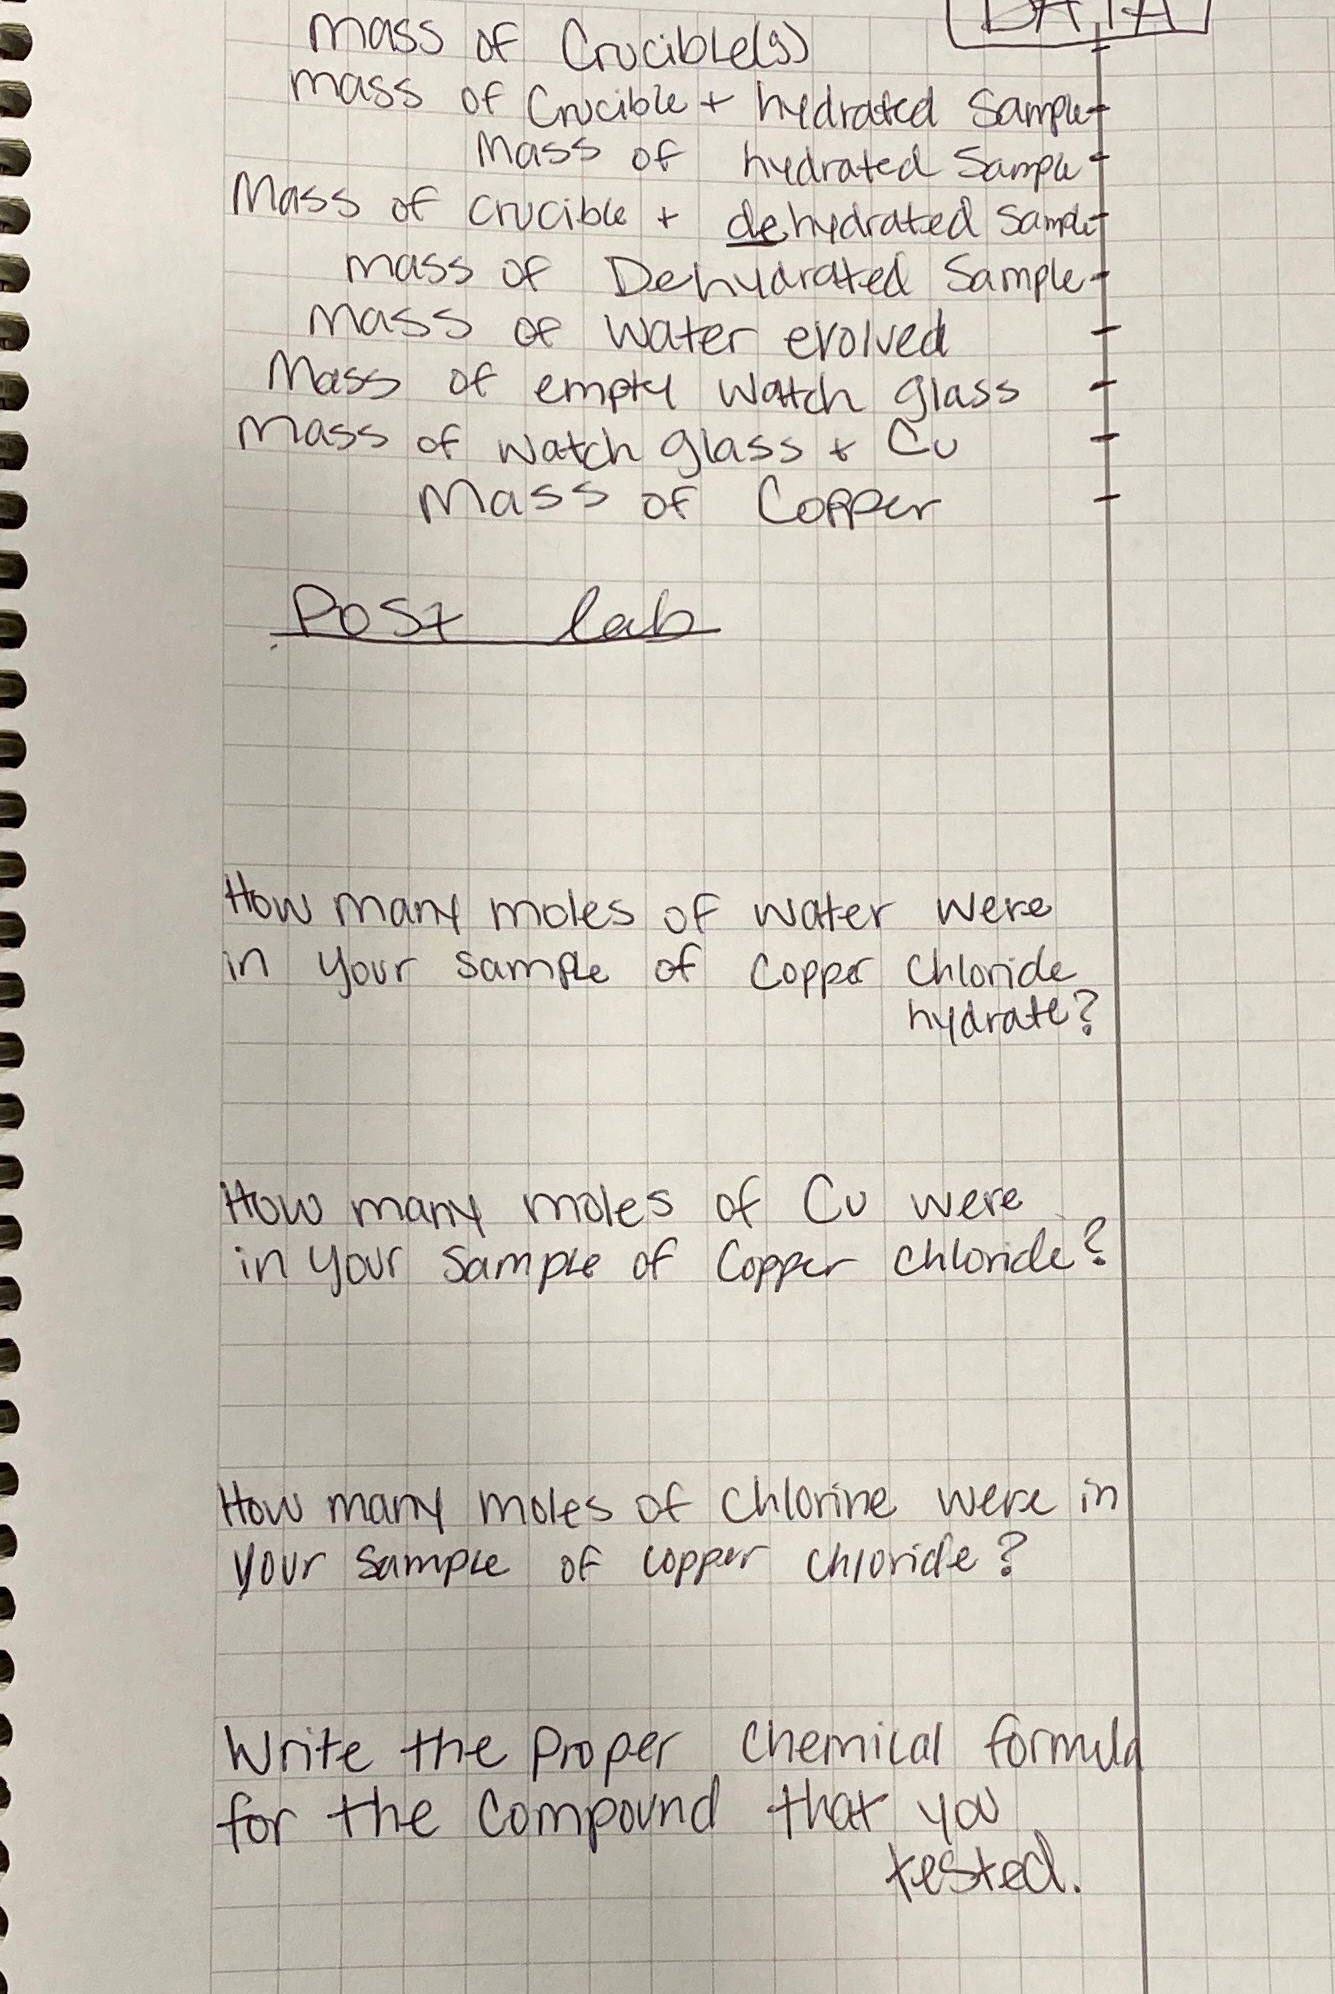 DATA
Mass of Crucible(s)
Mass of Crucible + hydrated Sample
Mass of hydrated Sample
Mass of crucible + dehydrated Sample
Mass of Dehydrated Sample
Mass of water evolved
Mass of empty watch glass
Mass of watch glass + Cu
Mass of Copper
Post lab
How many moles of water were
in your sample of copper chloride
hydrate?
How many moles of Cu were
in your sample of copper chloride?
How many moles of chlorine were in
your sample of copper chloride?
Write the proper chemical formula
for the compound that you
tested.